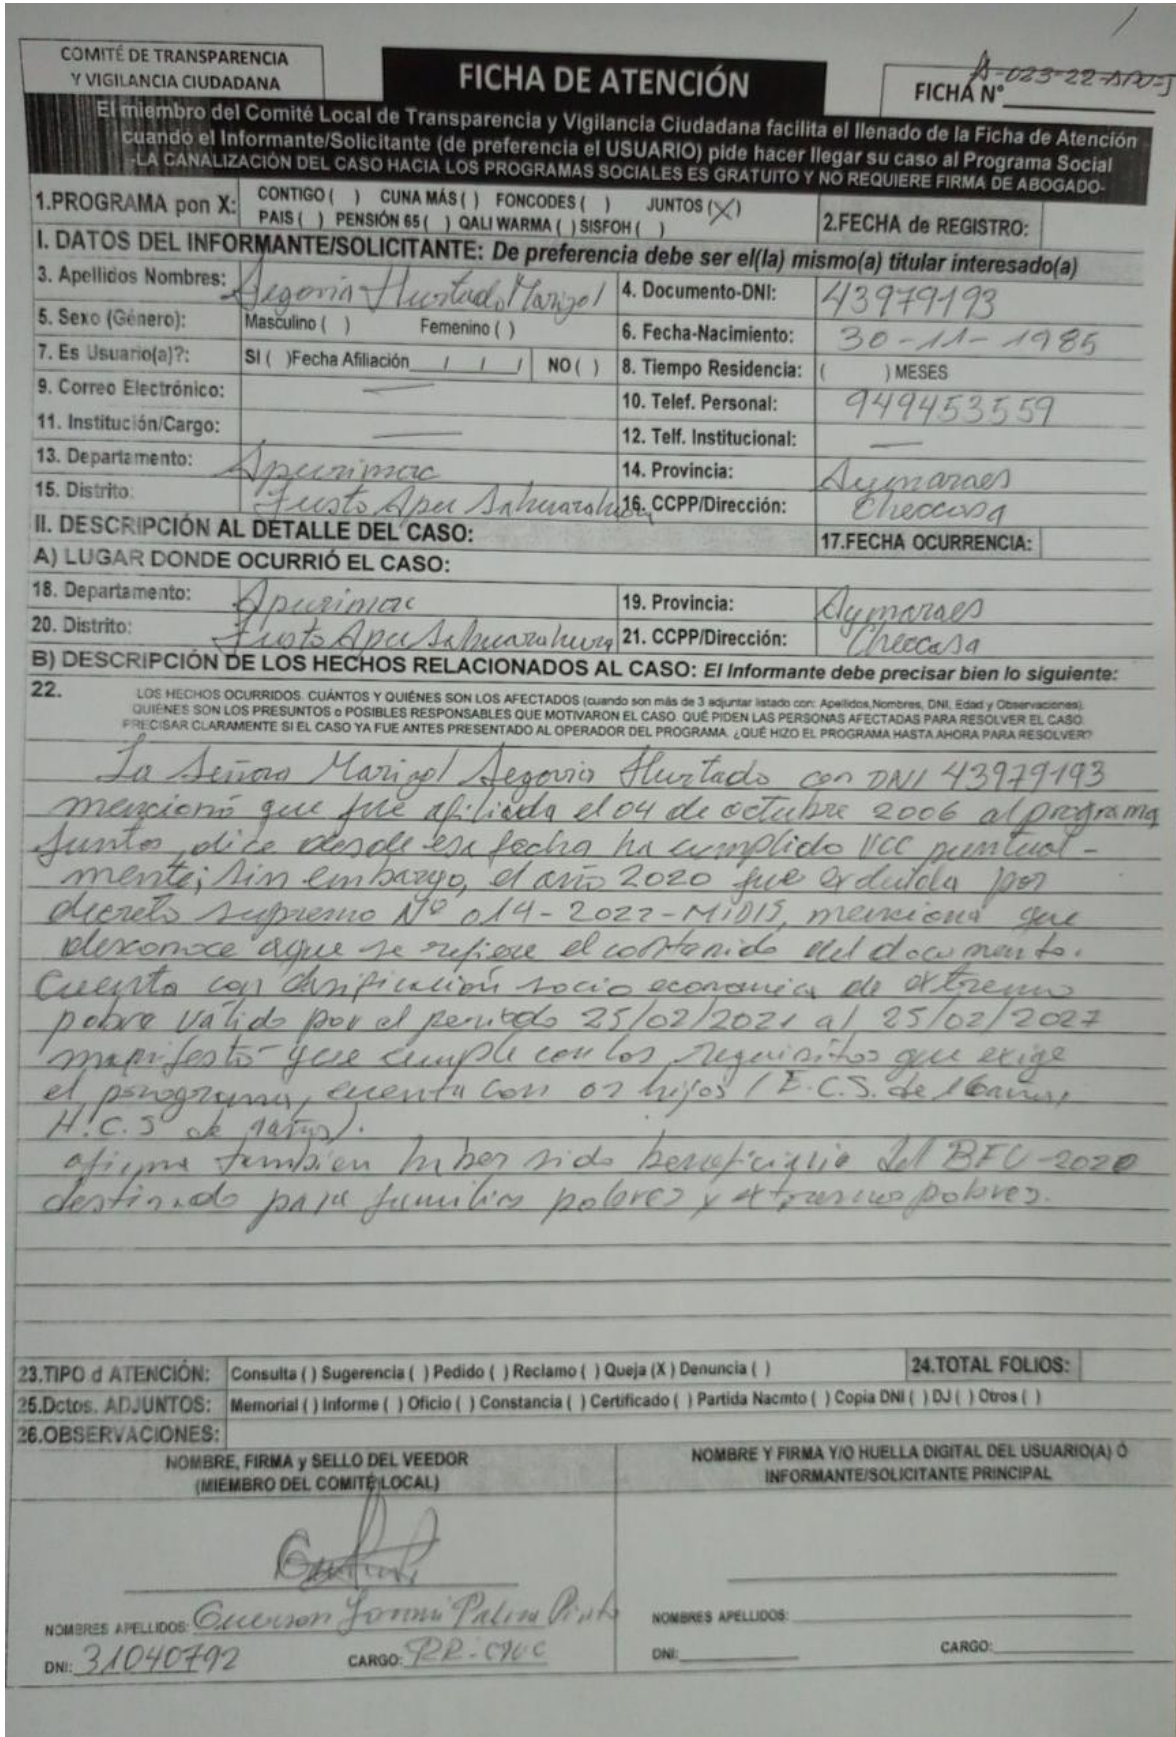 COMITÉ DE TRANSPARENCIA
Y VIGILANCIA CIUDADANA
FICHA DE ATENCIÓN
FICHA N° A-023-22-APU-J
El miembro del Comité Local de Transparencia y Vigilancia Ciudadana facilita el llenado de la Ficha de Atención
cuando el Informante/Solicitante (de preferencia el USUARIO) pide hacer llegar su caso al Programa Social
-LA CANALIZACIÓN DEL CASO HACIA LOS PROGRAMAS SOCIALES ES GRATUITO Y NO REQUIERE FIRMA DE ABOGADO-
1.PROGRAMA pon X: CONTIGO ( ) CUNA MÁS ( ) FONCODES ( ) JUNTOS (X)
PAIS ( ) PENSIÓN 65 ( ) QALI WARMA ( ) SISFOH ( ) 2.FECHA de REGISTRO:
I. DATOS DEL INFORMANTE/SOLICITANTE: De preferencia debe ser el(la) mismo(a) titular interesado(a)
3. Apellidos Nombres: Segovia Hurtado Marizol 4. Documento-DNI: 43979193
5. Sexo (Género): Masculino ( ) Femenino ( ) 6. Fecha-Nacimiento: 30-11-1985
7. Es Usuario(a)?: SI ( )Fecha Afiliación / / / NO ( ) 8. Tiempo Residencia: ( ) MESES
9. Correo Electrónico: — 10. Telef. Personal: 949453559
11. Institución/Cargo: — 12. Telf. Institucional: —
13. Departamento: Apurimac 14. Provincia: Aymaraes
15. Distrito: Justo Apu Sahuaraura 16. CCPP/Dirección: Checcasa
II. DESCRIPCIÓN AL DETALLE DEL CASO: 17.FECHA OCURRENCIA:
A) LUGAR DONDE OCURRIÓ EL CASO:
18. Departamento: Apurimac 19. Provincia: Aymaraes
20. Distrito: Justo Apu Sahuarahura 21. CCPP/Dirección: Checcasa
B) DESCRIPCIÓN DE LOS HECHOS RELACIONADOS AL CASO: El Informante debe precisar bien lo siguiente:
22. LOS HECHOS OCURRIDOS. CUÁNTOS Y QUIÉNES SON LOS AFECTADOS (cuando son más de 3 adjuntar listado con: Apellidos,Nombres, DNI, Edad y Observaciones).
QUIÉNES SON LOS PRESUNTOS o POSIBLES RESPONSABLES QUE MOTIVARON EL CASO. QUÉ PIDEN LAS PERSONAS AFECTADAS PARA RESOLVER EL CASO.
PRECISAR CLARAMENTE SI EL CASO YA FUE ANTES PRESENTADO AL OPERADOR DEL PROGRAMA. ¿QUÉ HIZO EL PROGRAMA HASTA AHORA PARA RESOLVER?
La Señora Marizol Segovia Hurtado con DNI 43979193
mencionó que fue afiliada el 04 de octubre 2006 al programa
Juntos, dice desde esa fecha ha cumplido VCC puntual-
mente; sin embargo, el año 2020 fue excluida por
decreto supremo N° 014-2022-MIDIS, menciona que
desconoce aque se refiere el contenido del documento.
Cuenta con clasificación socio economica de extremo
pobre válido por el periodo 25/02/2021 al 25/02/2027
manifestó que cumple con los requisitos que exige
el programa, cuenta con 02 hijos (E.C.S. de
H.C.S de
afirma tambien haber sido beneficiario del BFU-2020
destinado para familias pobres y extremo pobres.
23.TIPO d ATENCIÓN: Consulta ( ) Sugerencia ( ) Pedido ( ) Reclamo ( ) Queja (X ) Denuncia ( ) 24.TOTAL FOLIOS:
25.Dctos. ADJUNTOS: Memorial ( ) Informe ( ) Oficio ( ) Constancia ( ) Certificado ( ) Partida Nacmto ( ) Copia DNI ( ) DJ ( ) Otros ( )
26.OBSERVACIONES:
NOMBRE, FIRMA y SELLO DEL VEEDOR
(MIEMBRO DEL COMITÉ LOCAL)
NOMBRE Y FIRMA Y/O HUELLA DIGITAL DEL USUARIO(A) Ó
INFORMANTE/SOLICITANTE PRINCIPAL
NOMBRES APELLIDOS: Palma Pinto
DNI: 31040792 CARGO:
NOMBRES APELLIDOS:
DNI: CARGO: